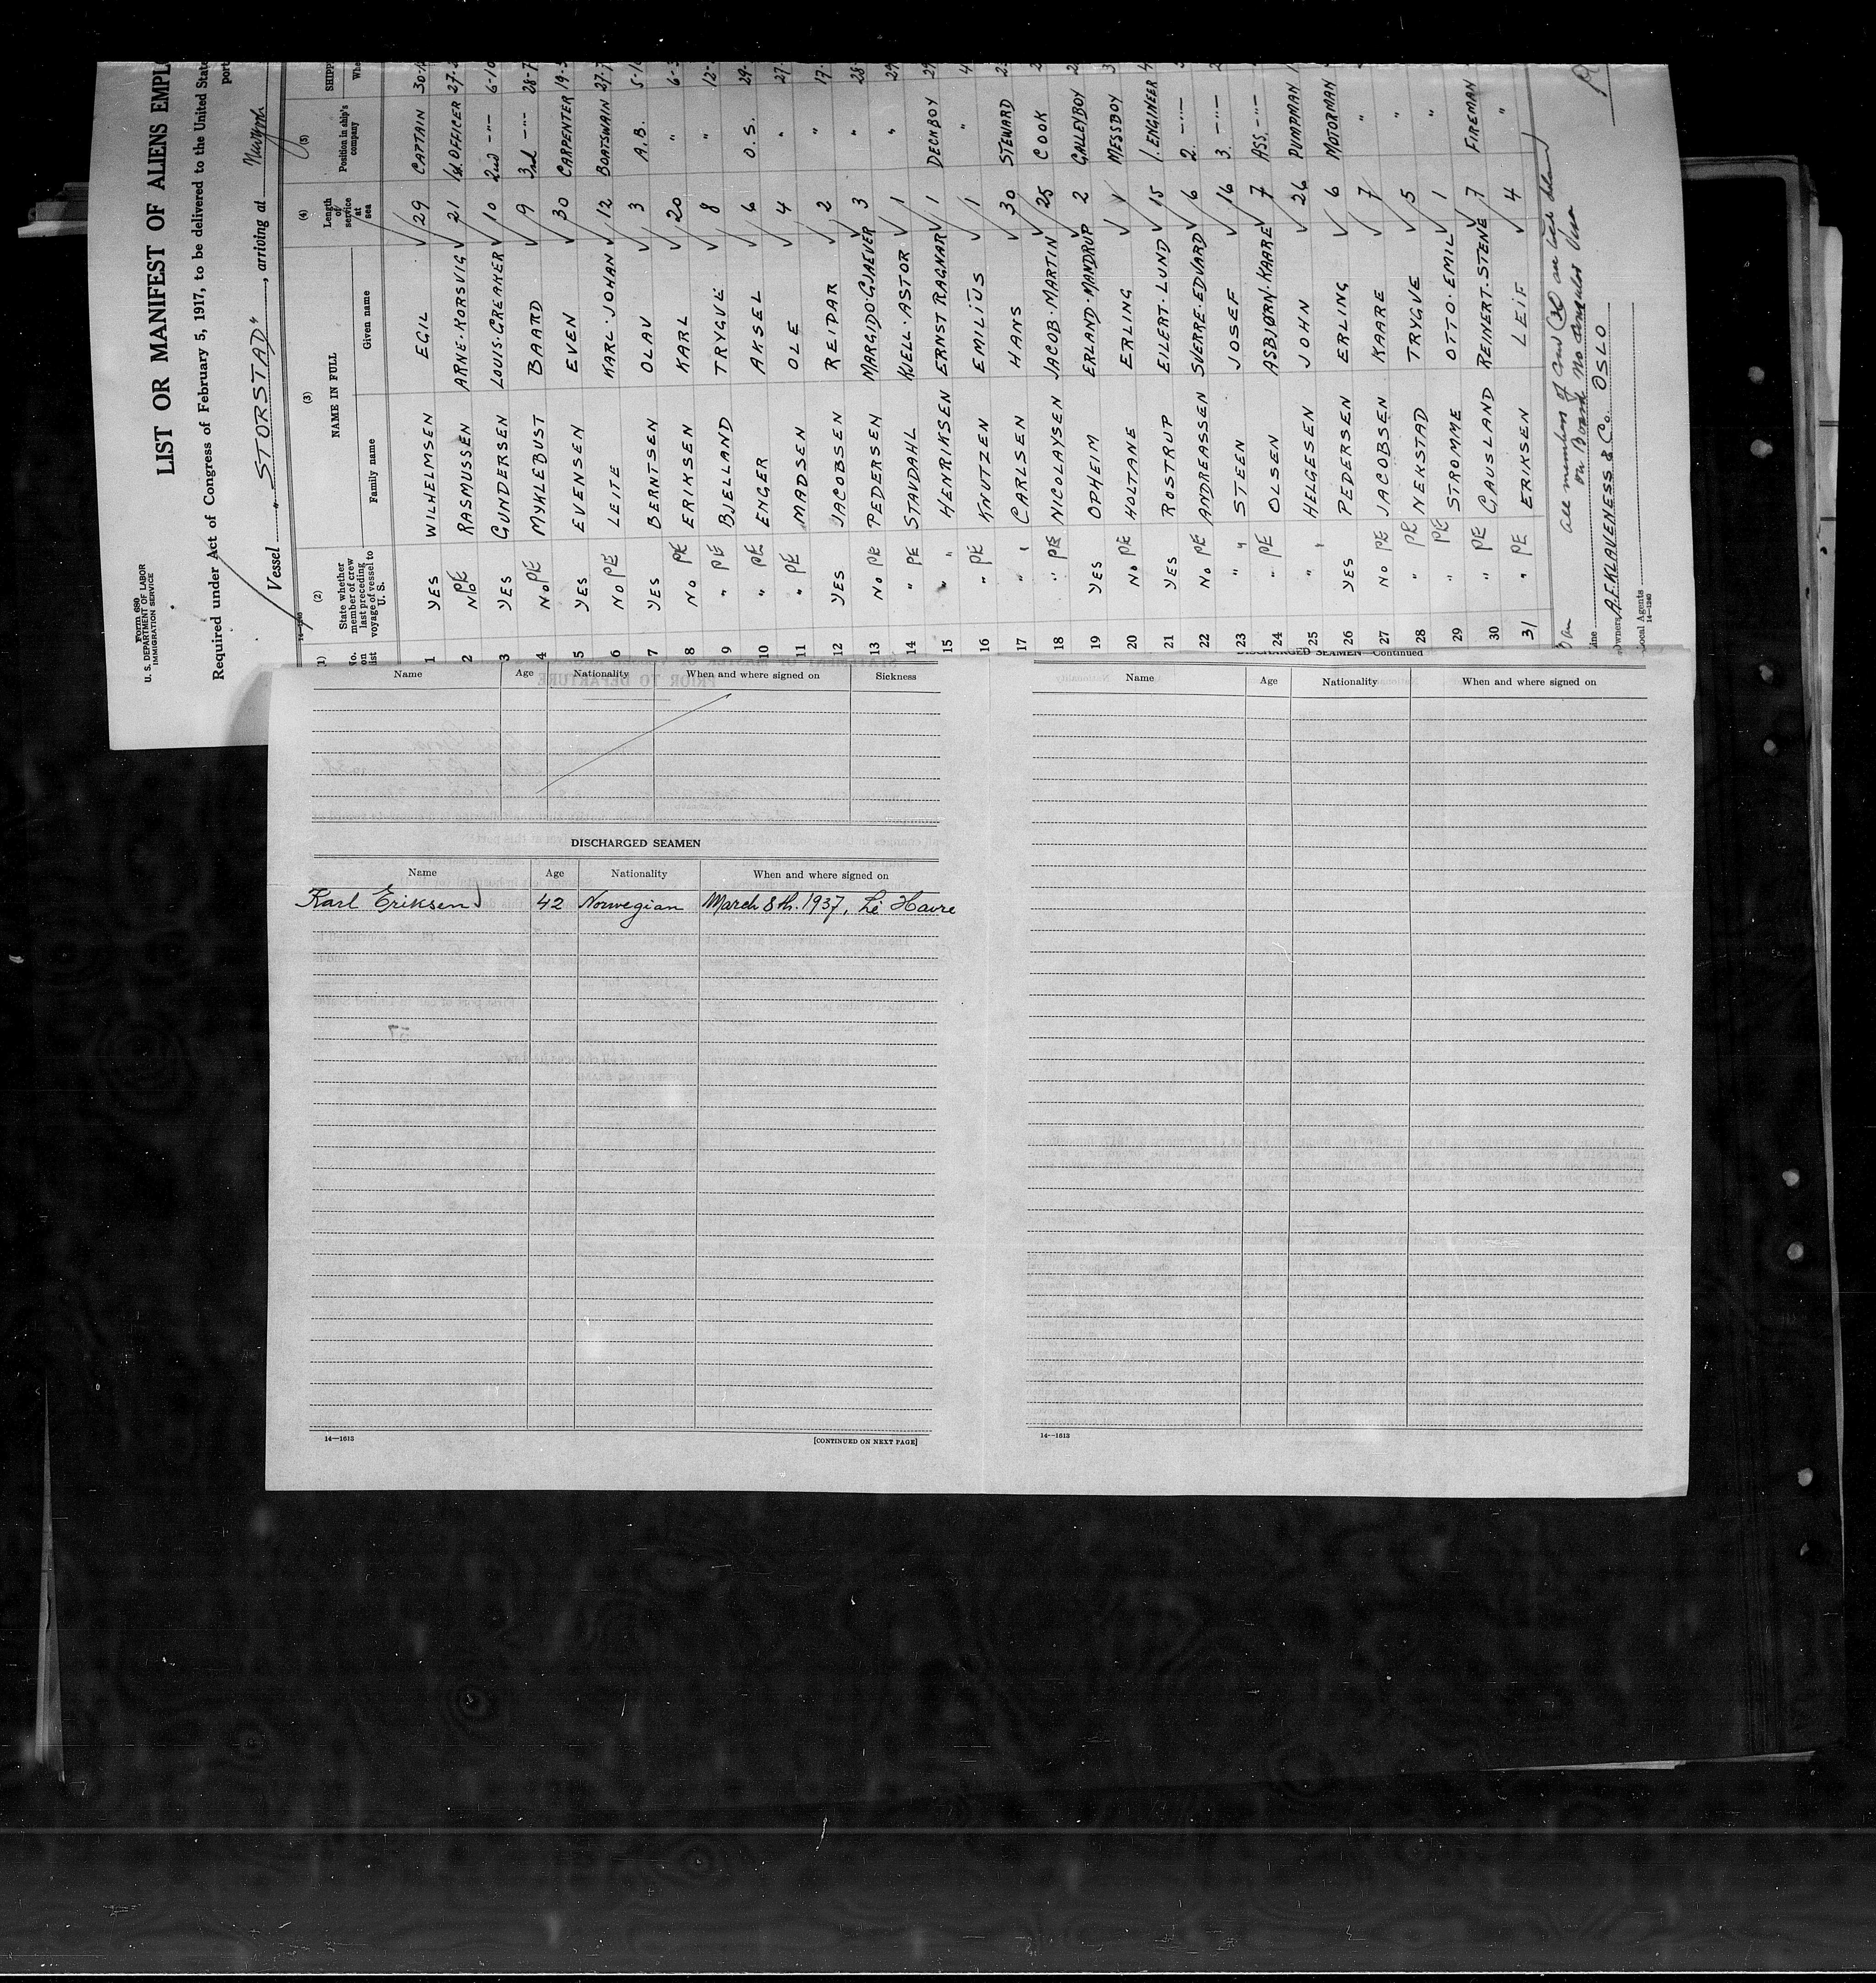 Form 680
U. S. DEPARTMENT OF LABOR
IMMIGRATION SERVICE
LIST OR MANIFEST OF ALIENS EMPLO
Required under Act of Congress of February 5, 1917, to be delivered to the United State
port
Vessel "STORSTAD", arriving at Newyork
(1) (2) (3) (4) (5)
No. on list State whether member of crew last preceding voyage of vessel to U. S. NAME IN FULL Family name Given name Length of service at sea Position in ship's company SHIPP Whe
1 YES WILHELMSEN EGIL 29 CAPTAIN
2 No PE RASMUSSEN ARNE·KORSVIG 21 1st. OFFICER
3 YES GUNDERSEN LOUIS·GREAKER 10 2nd -"-
4 No PE MYKLEBUST BAARD 9 3rd -"-
5 YES EVENSEN EVEN 30 CARPENTER
6 No PE LEITE KARL·JOHAN 12 BOATSWAIN
7 YES BERNTSEN OLAV 3 A.B.
8 No PE ERIKSEN KARL 20 "
9 " PE BJELLAND TRYGVE 8 "
10 " PE ENGER AKSEL 6 O.S.
11 " PE MADSEN OLE 4 "
12 YES JACOBSEN REIDAR 2 "
13 No PE PEDERSEN MARGIDO·GJAEVER 3 "
14 " PE STAVDAHL KJELL·ASTOR 1 "
15 " " HENRIKSEN ERNST RAGNAR 1 DECKBOY
16 " PE KNUTZEN EMILIUS 1 "
17 " " CARLSEN HANS 30 STEWARD
18 " PE NICOLAYSEN JACOB·MARTIN 25 COOK
19 YES OPHEIM ERLAND·MANDRUP 2 GALLEYBOY
20 No PE HOLTANE ERLING MESSBOY
21 YES ROSTRUP EILERT·LUND 15 1. ENGINEER
22 No PE ANDREASSEN SVERRE·EDVARD 6 2. -"-
23 " " STEEN JOSEF 16 3. -"-
24 " PE OLSEN ASBJØRN·KAARE 7 ASS. -"-
25 " " HELGESEN JOHN 26 PUMPMAN
26 YES PEDERSEN ERLING 6 MOTORMAN
27 No PE JACOBSEN KAARE 7 "
28 " PE NEKSTAD TRYGVE 5 "
29 " PE STROMME OTTO·EMIL 1 "
30 " PE CAUSLAND REINERT·STENE 7 FIREMAN
31 " PE ERIKSEN LEIF 4 "
all members of
on Board no
Visa
Owners A.F. KLAVENESS & Co. OSLO
Local Agents
14—1240
Name Age Nationality When and where signed on Sickness
DISCHARGED SEAMEN
Name Age Nationality When and where signed on
Karl Eriksen 42 Norwegian March 8th. 1937, Le Havre
14—1613
[CONTINUED ON NEXT PAGE]
DISCHARGED SEAMEN—Continued
Name Age Nationality When and where signed on
14—1613